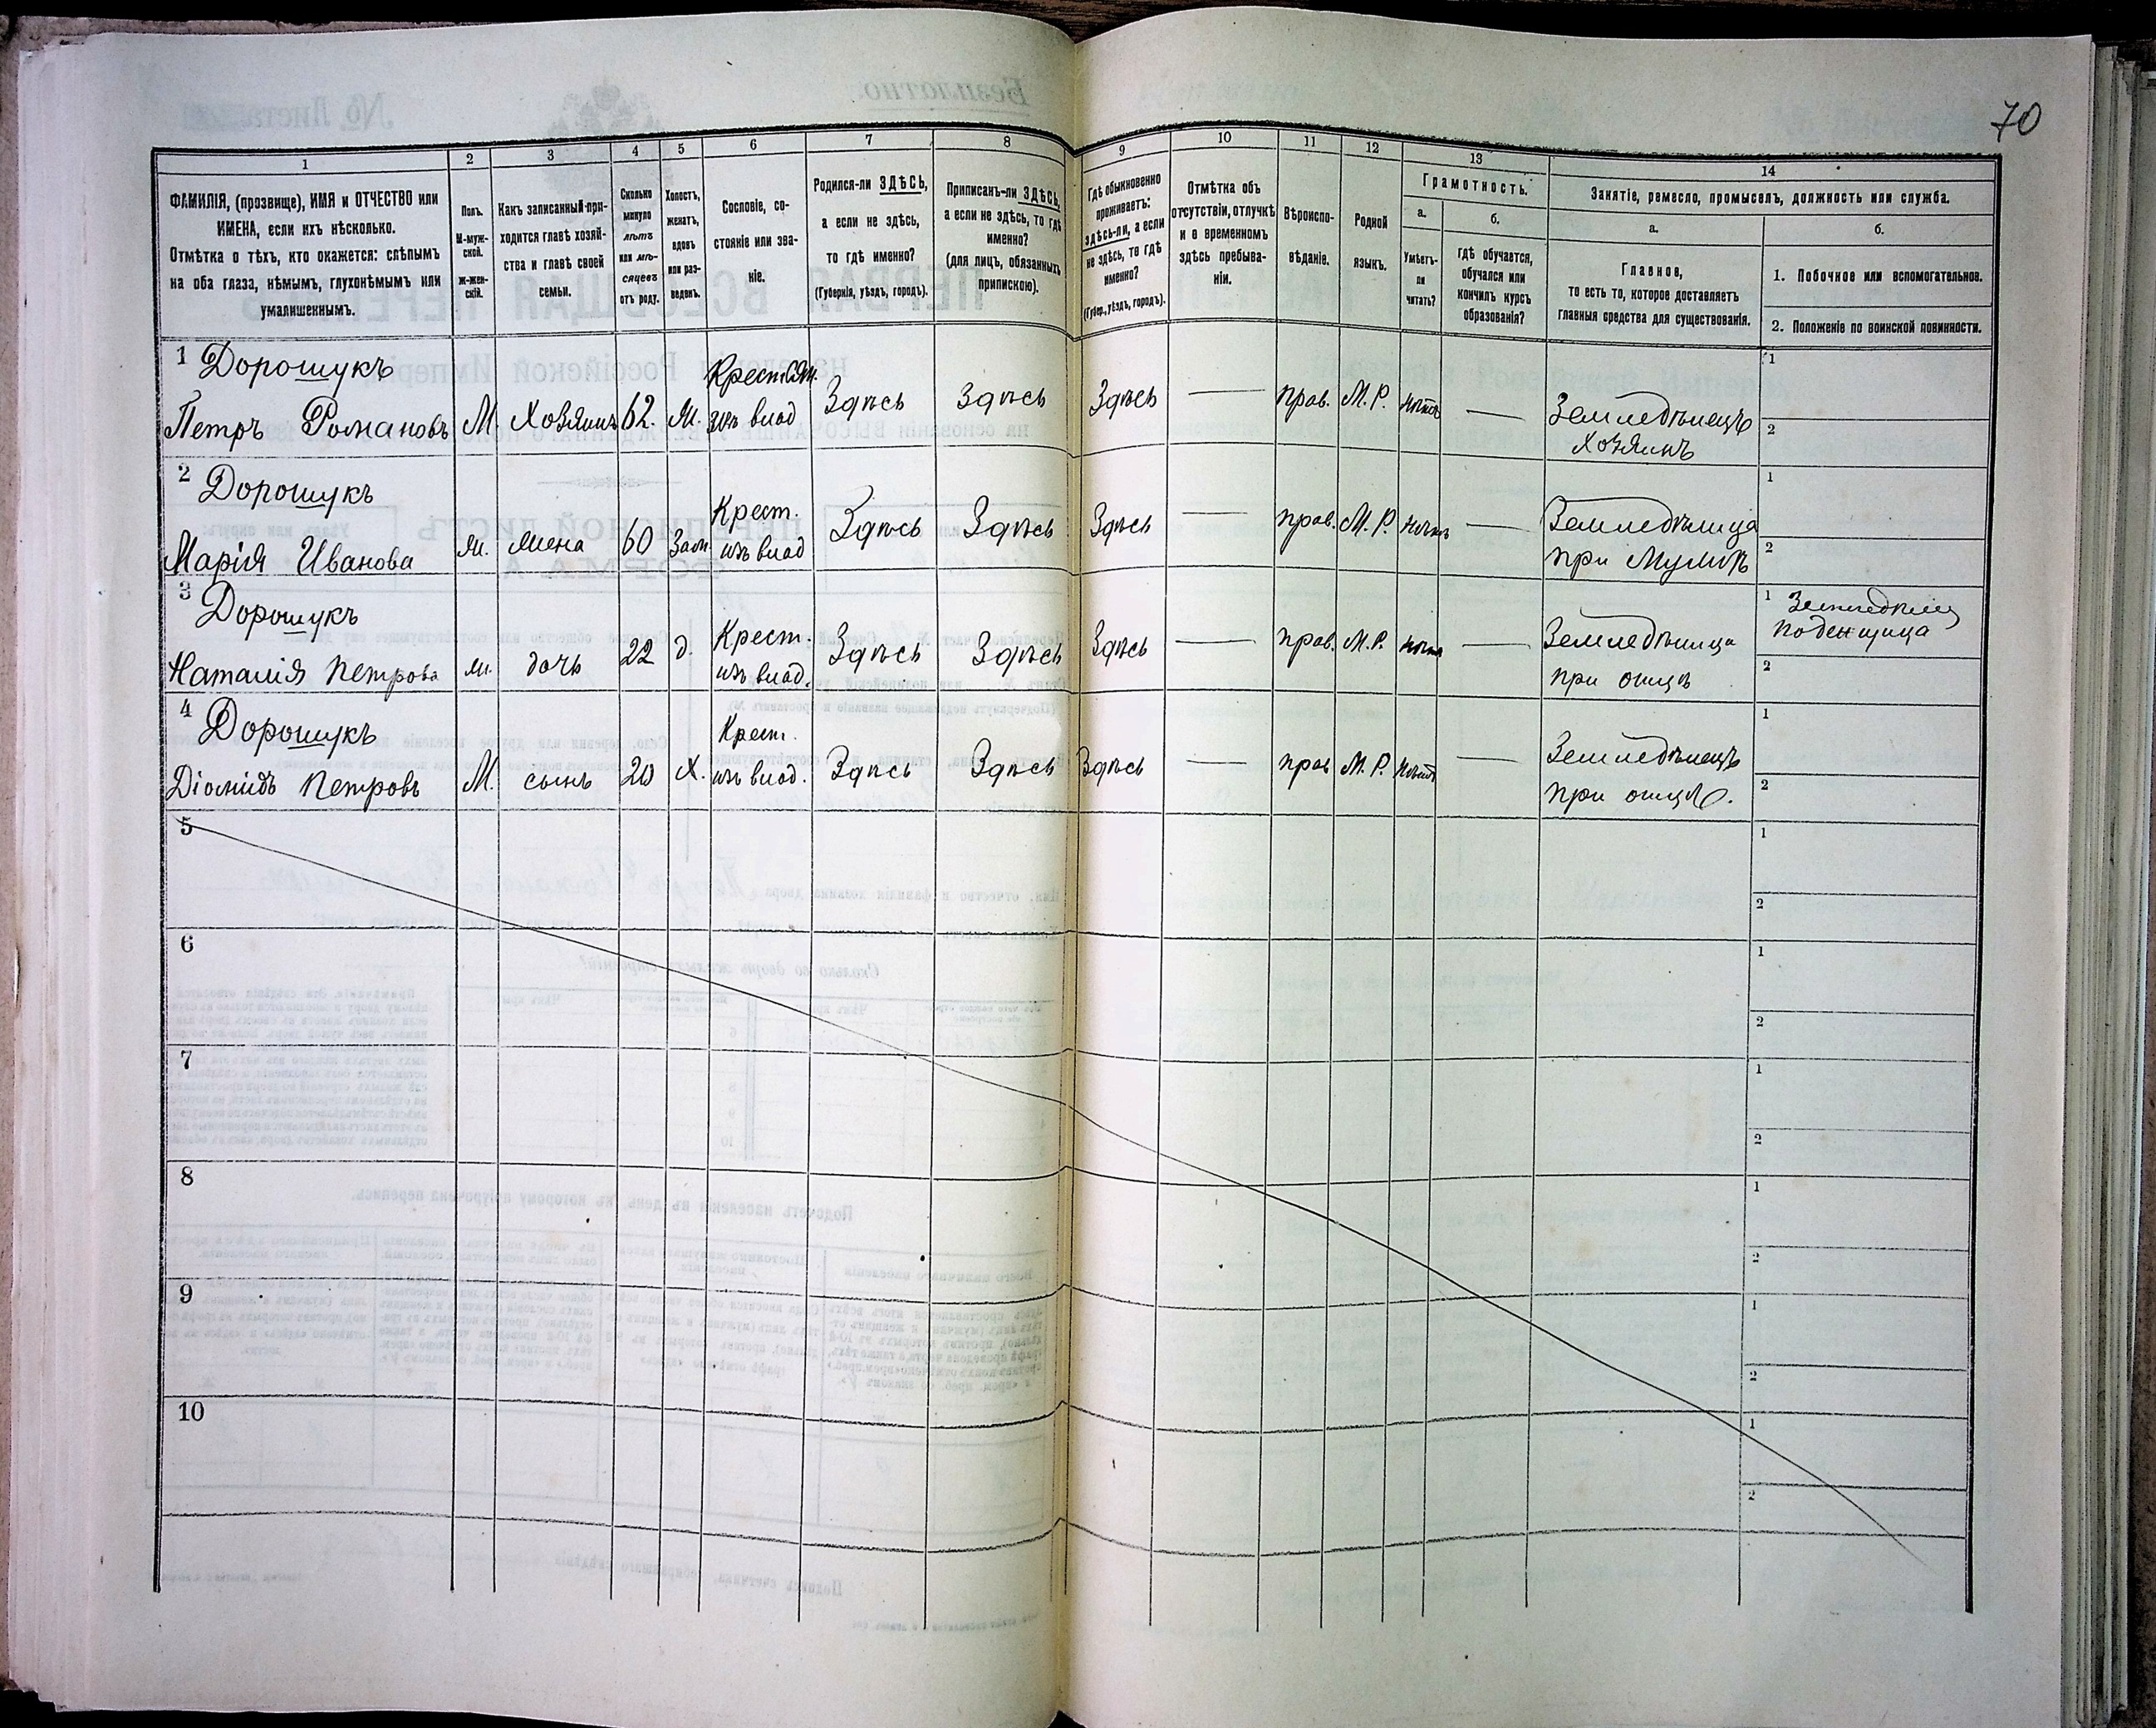 70
1
2
3
4
5
6
7
8
9
10
11
12
13
14
ФАМИЛІЯ, (прозвище), ИМЯ и ОТЧЕСТВО или
ИМЕНА, если ихъ нѣсколько.
Отмѣтка о тѣхъ, кто окажется: слѣпымъ
на оба глаза, нѣмымъ, глухонѣмымъ или
умалишеннымъ.
Полъ.
М-муж-
ской.
Ж-жен-
скій.
Какъ записанный при-
ходится главѣ хозяй-
ства и главѣ своей
семьи.
Сколько
минуло
лѣтъ
или мѣ-
сяцевъ
отъ роду.
Холостъ,
женатъ,
вдовъ
или раз-
веденъ.
Сословіе, со-
стояніе или зва-
ніе.
Родился-ли ЗДѢСЬ,
а если не здѣсь,
то гдѣ именно?
(Губернія, уѣздъ, городъ).
Приписанъ-ли ЗДѢСЬ,
а если не здѣсь, то гдѣ
именно?
(для лицъ, обязанныхъ
припискою).
Гдѣ обыкновенно
проживаетъ:
здѣсь-ли, а если
не здѣсь, то гдѣ
именно?
(Губер., уѣздъ, городъ).
Отмѣтка объ
отсутствіи, отлучкѣ
и о временномъ
здѣсь пребыва-
ніи.
Вѣроиспо-
вѣданіе.
Родной
языкъ.
Грамотность.
а.
б.
Умѣетъ-
ли
читать?
гдѣ обучается,
обучался или
кончилъ курсъ
образованія?
Занятіе, ремесло, промыселъ, должность или служба.
а.
б.
Главное,
то есть то, которое доставляетъ
главныя средства для существованія.
1. Побочное или вспомогательное.
2. Положеніе по воинской повинности.
1 Дорошукъ
Петръ Романовъ М. Хозяинъ 62. Крест. изъ влад Здѣсь Здѣсь Здѣсь — прав. М. Р. нѣтъ — Земледѣлецъ
Хозяинъ
1
2
2 Дорошукъ
Марія Иванова ж. жена 60 Зам. Крест. изъ влад Здѣсь Здѣсь Здѣсь — прав. М. Р. нѣтъ — Земледѣлица
при Мужѣ
1
2
3 Дорошукъ
Наталія Петрова ж. дочь 22 д. Крест. изъ влад. Здѣсь Здѣсь Здѣсь — прав. М. Р. нѣтъ — Земледѣлица
при отцѣ
1
поденщица
2
4 Дорошукъ
Діомидъ Петровъ М. сынъ 20 Х. Крест. изъ влад. Здѣсь Здѣсь Здѣсь прав М. Р. нѣтъ — Земледѣлецъ
при отцѣ.
1
2
5
1
2
6
1
2
7
1
2
8
1
2
9
1
2
10
1
2